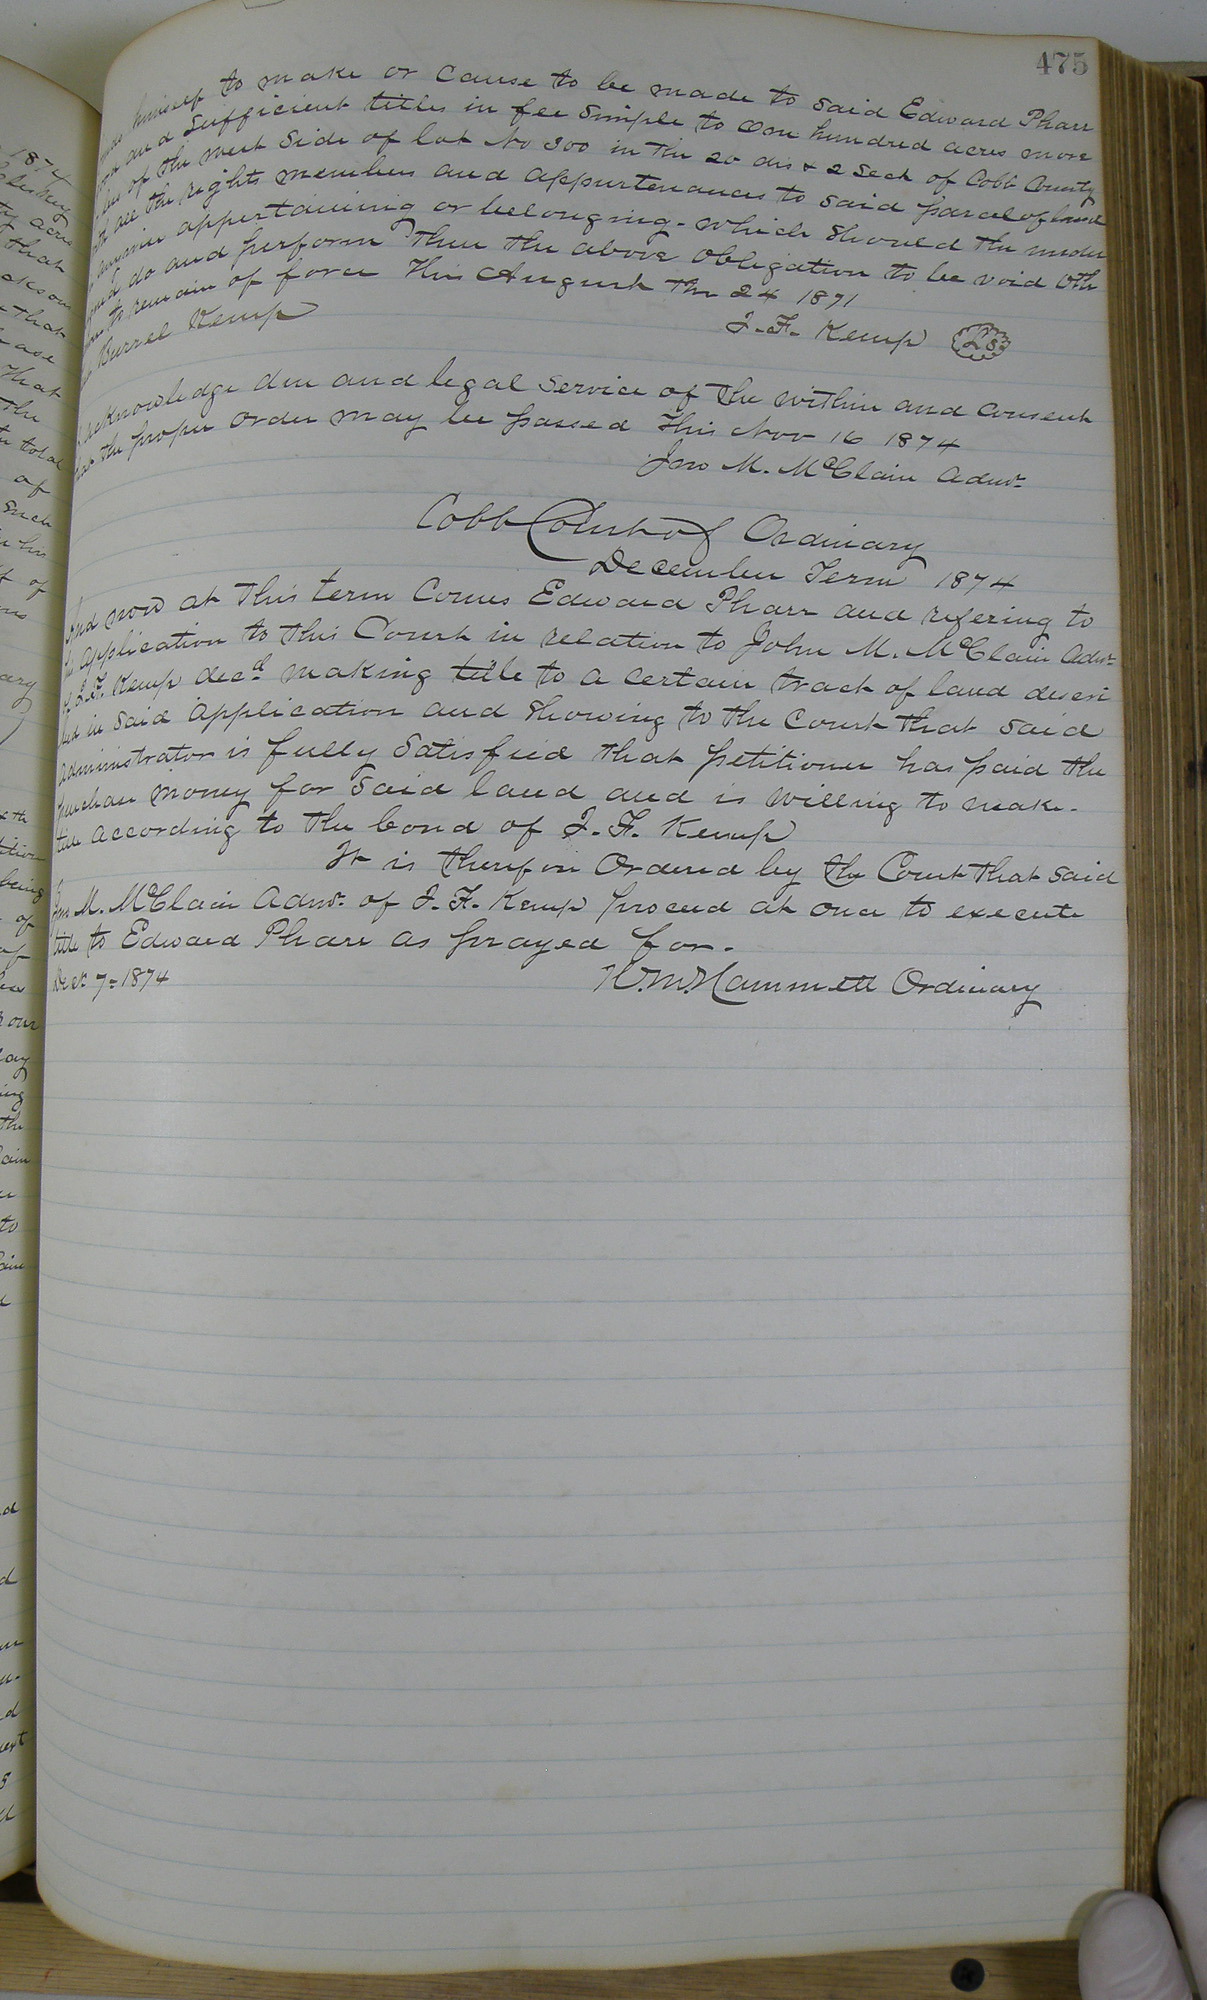 475
himself to make or cause to be made to said Edward Pharr
and Sufficient titles in fee simple to One hundred acres more
of the west Side of lot No 300 in the 20 dis & 2 Sect of Cobb County
all the rights members and appurtenances to said parcel of land
appertaining or belonging. which should the under
do and perform then the above obligation to be void Oth
to remain of force This August the 24 1871
J. F. Kemp LS
Burrel Kemp
acknowledge due and legal Service of the within and consent
that the proper order may be passed This Nov 16 1874
Jno M. McClain Admr
Cobb Court of Ordinary
December Term 1874
And now at this term Comes Edward Pharr and refering to
his application to this Court in relation to John M. McClain Admr
of J. F. Kemp decd making title to a certain tract of land descri
bed in said application and showing to the Court that said
administrator is fully Satisfied that petitioner has paid the
purchase money for said land and is willing to make
title according to the bond of J. F. Kemp
It is therefore Ordered by the Court that said
Jno M. McClain Admr. of J. F. Kemp proceed at once to execute
title to Edward Pharr as prayed for.
Dec 7 = 1874
H. M. Hammett Ordinary